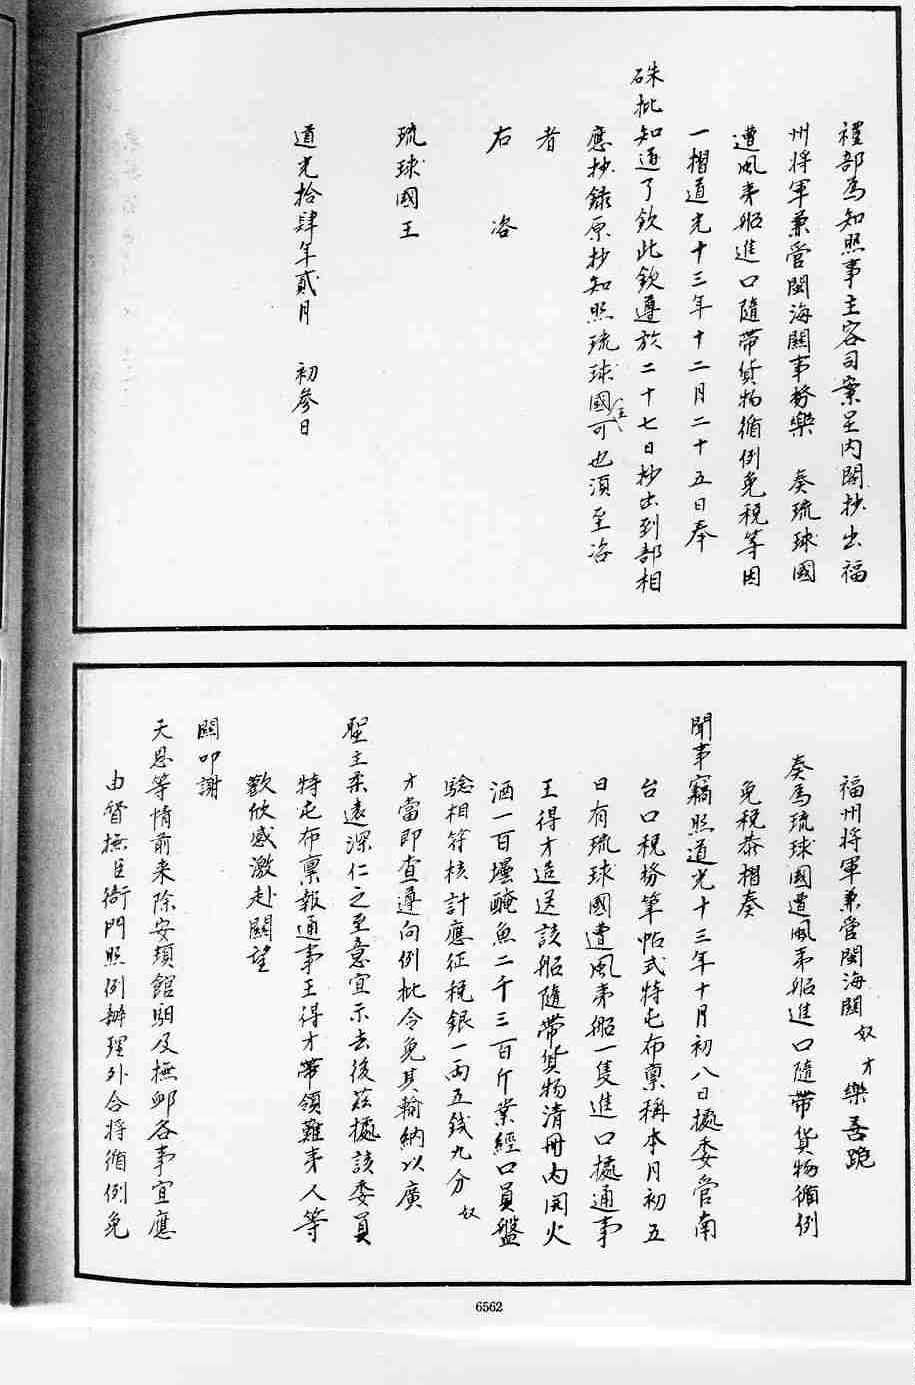 禮部爲知照事主客司案呈內閣抄出福
州將軍兼管閩海關事務樂 奏琉球國
遭風夷船進口隨帶貨物循例免稅等因
一摺道光十三年十二月二十五日奉
硃批知道了欽此欽遵於二十七日抄出到部相
應抄錄原抄知照琉球國王可也須至咨
者
右咨
琉球國王
道光拾肆年貳月 初參日
福州將軍兼管閩海關奴才樂善跪
奏爲琉球國遭風夷船進口隨帶貨物循例
免稅恭摺奏
聞事竊照道光十三年十月初八日據委管南
台口稅務筆帖式特屯布稟稱本月初五
日有琉球國遭風夷船一隻進口據通事
王得才造送該船隨帶貨物清冊內開火
酒一百壜醃魚二千三百斤業經口員盤
驗相符核計應征稅銀一兩五錢九分奴
才當即查遵向例批令免其輸納以廣
聖主柔遠深仁之至意宜示去後茲據該委員
特屯布稟報通事王得才帶領難夷人等
歡欣感激赴關望
闕叩謝
天恩等情前來除安頓館驛及撫卹各事宜應
由督撫臣衙門照例辦理外合將循例免
6562